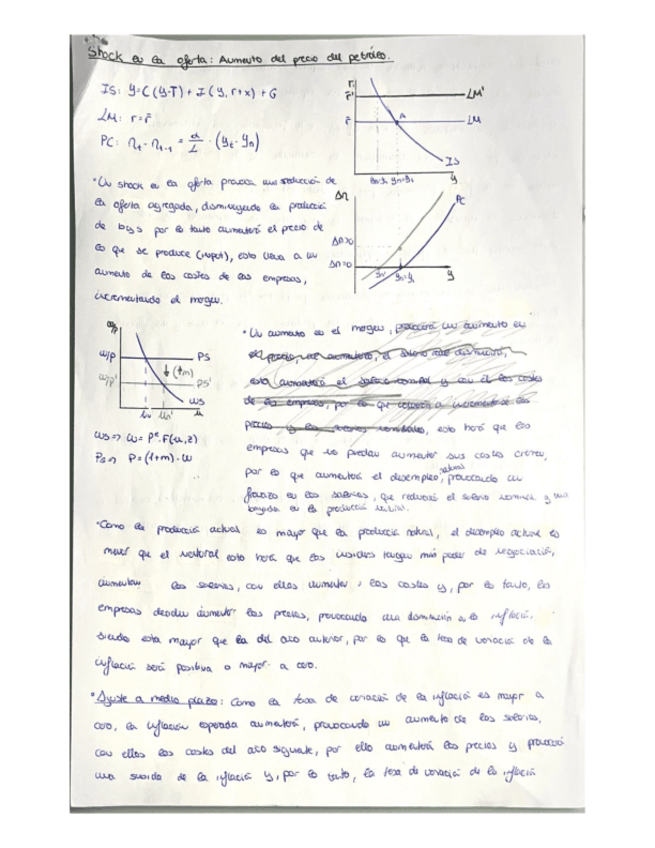 Shock en la oferta: Aumento del precio del petróleo.
IS: Y=C(Y-T)+I(Y,r+x)+G
LM: r=r̄
PC: π_t-π_t-1 = α/L · (Y_t-Y_n)
r
r̄'
LM'
r̄
A
LM
IS
Yn=Y1
Y
Δπ
PC
Δπ>0
Δπ=0
Yn'
Yn=Y1
Y
"Un shock en la oferta provoca una reducción de
la oferta agregada, disminuyendo la producción
de por lo tanto aumentará el precio de
lo que se produce (input), esto lleva a un
aumento de los costes de las empresas,
incrementando el margen.
W/P
W/P
PS
↓(↑m)
W/P'
PS'
WS
un
un'
u
WS=> W=Pe·F(u,z)
PS=> P=(1+m)·W
"Un aumento en el margen, producirá un aumento en
el precio, el salario
esto aumentará el salario nominal y con él los costes
de las empresas, por lo que
precios y los salarios nominales, esto hará que las
empresas que no puedan aumentar sus costes cierren,
por lo que aumentará el desempleo natural, provocando un
en los salarios, que reducirá el salario nominal y una
bajada en la producción
"Como la producción actual es mayor que la producción natural, el desempleo actual es
menor que el natural esto hará que los tengan más poder de negociación,
aumentan los salarios, con ellos aumentan los costes y, por lo tanto, las
empresas deciden aumentar los precios, provocando una en la inflación,
siendo esta mayor que la del año anterior, por lo que la tasa de variación de la
inflación será positiva o mayor a cero.
"Ajuste a medio plazo: Como la tasa de variación de la inflación es mayor a
cero, la inflación esperada aumentará, provocando un aumento de los salarios,
con ellos los costes del año siguiente, por ello aumentará los precios y provocará
una subida de la inflación y, por lo tanto, la tasa de variación de la inflación